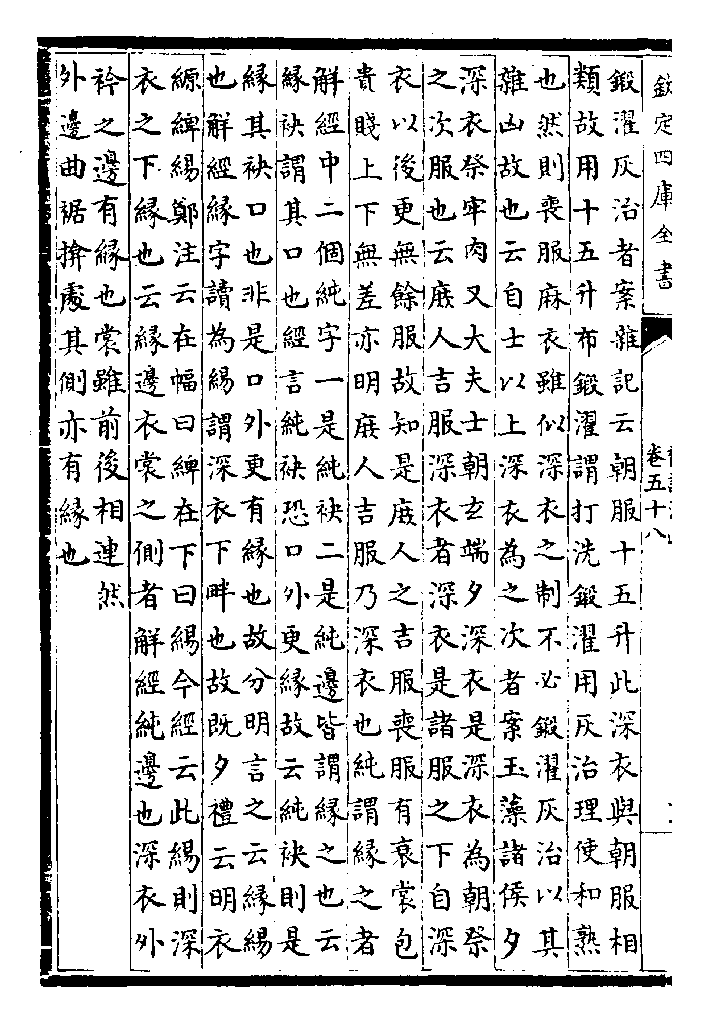 欽定四庫全書
卷五十八
鍛濯灰治者案雜記云朝服十五升此深衣與朝服相
類故用十五升布鍛濯謂打洗鍛濯用灰治理使和熟
也然則喪服麻衣雖似深衣之制不必鍛濯灰治以其
雜凶故也云自士以上深衣為之次者案玉藻諸侯夕
深衣祭牢肉又大夫士朝玄端夕深衣是深衣為朝祭
之次服也云庻人吉服深衣者深衣是諸服之下自深
衣以後更無餘服故知是庻人之吉服喪服有衰裳包
貴賤上下無差亦明庻人吉服乃深衣也純謂緣之者
解經中二個純字一是純袂二是純邊皆謂緣之也云
緣袂謂其口也經言純袂恐口外更緣故云純袂則是
緣其袂口也非是口外更有緣也故分明言之云緣緆
也解經緣字讀為緆謂深衣下畔也故既夕禮云明衣
縓綼緆鄭注云在幅曰綼在下曰緆今經云此緆則深
衣之下緣也云緣邊衣裳之側者解經純邊也深衣外
衿之邊有緣也裳雖前後相連然
外邊曲裾揜處其側亦有緣也